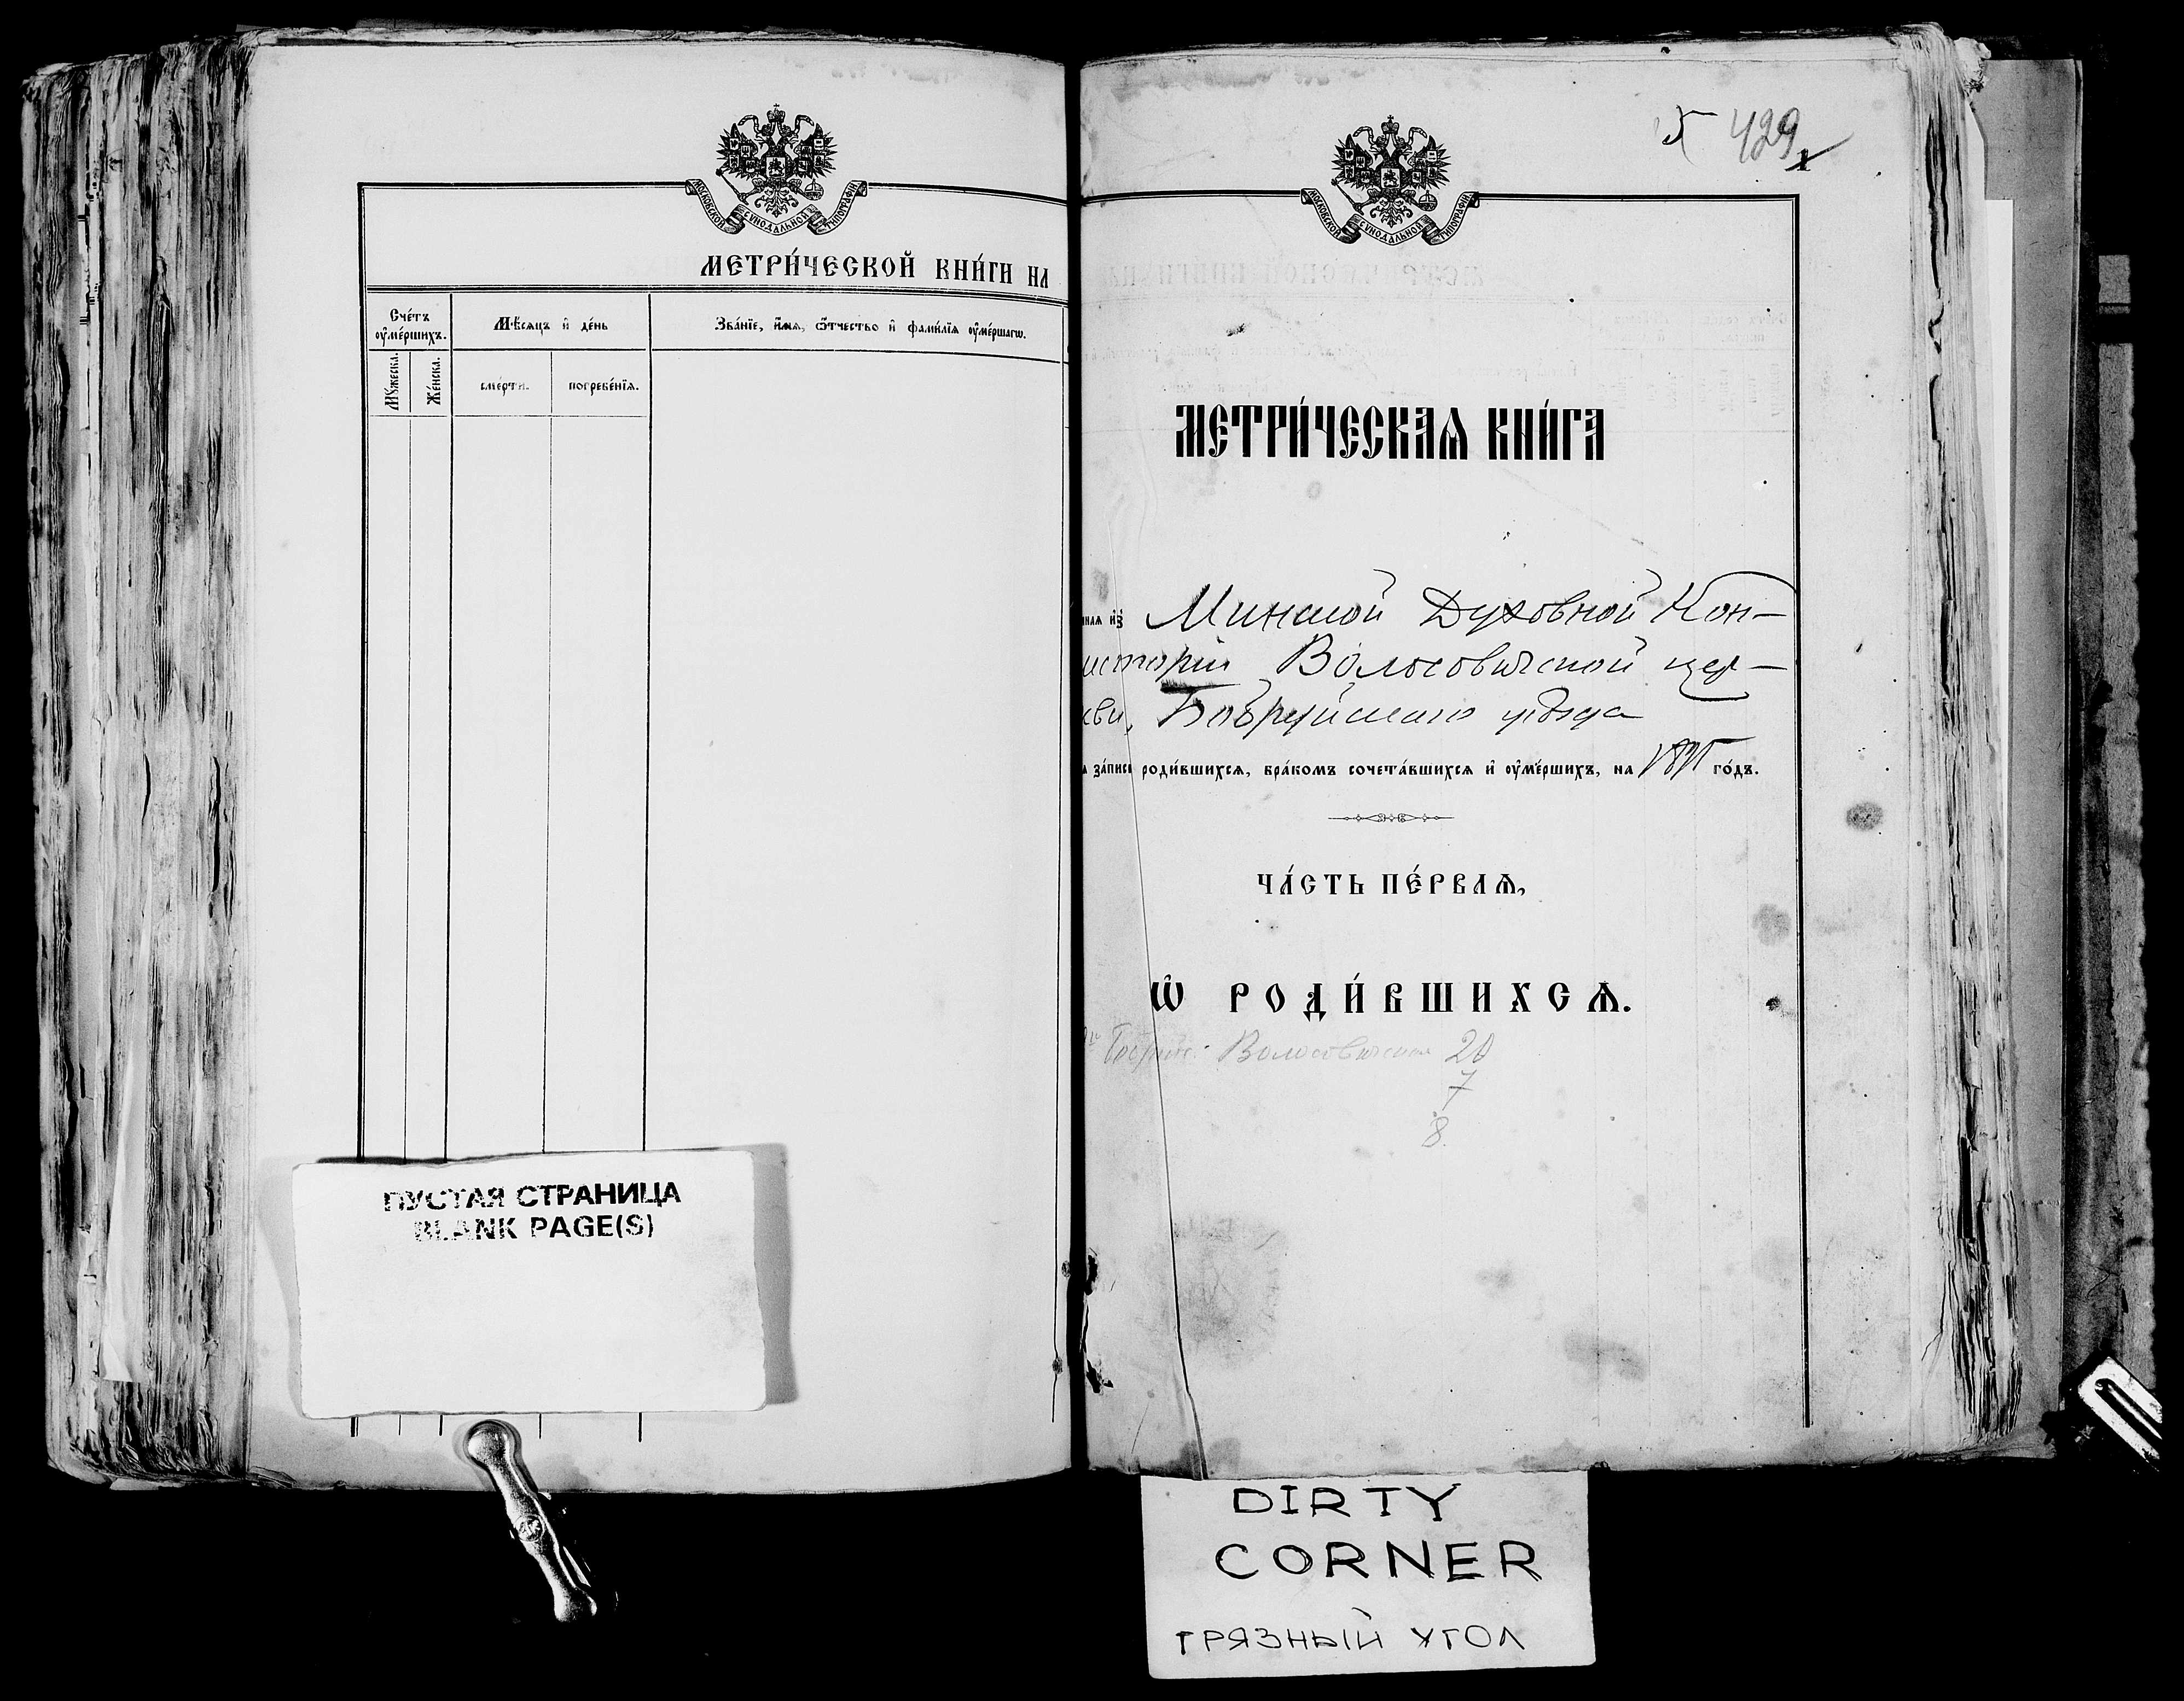 МОСКОВСКОЙ СѴНОДАЛЬНОЙ ТИПОГРАФІИ
МЕТРИ́ЧЕСКОЙ КНИ́ГИ НА
Сче́тъ ᲂу҆ме́ршихъ.
Мѣ́сяцъ и҆ де́нь
Зва́нїе, и҆́мѧ, ѻ҆́тчество и҆ фами́лїѧ ᲂу҆ме́ршагѡ.
Мꙋ́жеска.
Же́нска.
сме́рти.
погребе́нїѧ.
ПУСТАЯ СТРАНИЦА
BLANK PAGE(S)
429
МОСКОВСКОЙ СѴНОДАЛЬНОЙ ТИПОГРАФІИ
МЕТРИ́ЧЕСКАѦ КНИ́ГА
нная из Минской Духовной Кон-
систоріи Волосовичской цер-
кви, Бобруйскаго уѣзда
за́писи роди́вшихсѧ, бра́комъ сочета́вшихсѧ и҆ ᲂу҆ме́ршихъ, на го́дъ.
ЧА́СТЬ ПЕ́РВАѦ,
Ѽ РОДИ́ВШИХСѦ.
Волосовичская 20
7
8.
DIRTY
CORNER
ГРЯЗНЫЙ УГОЛ